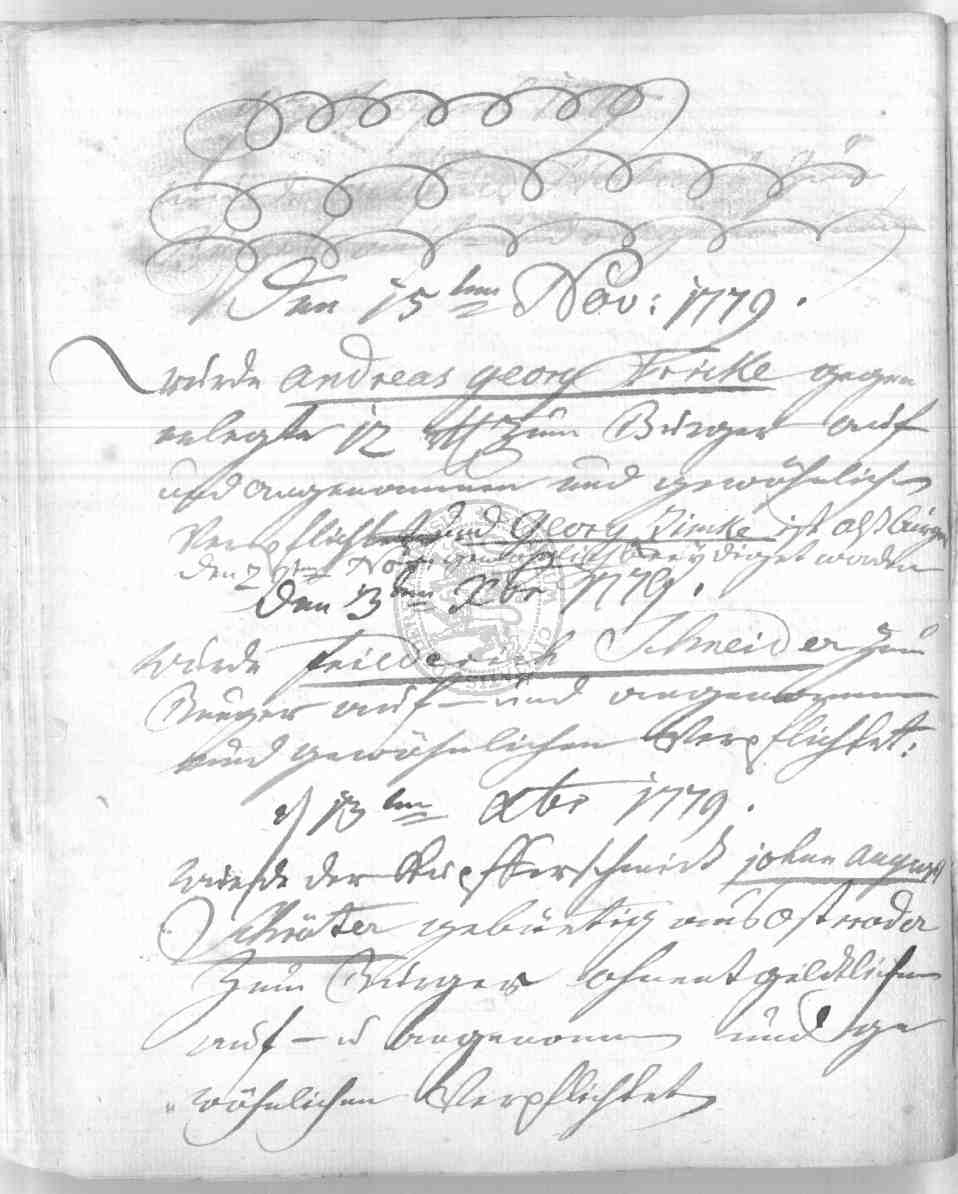 Den 15ten Nov: 1779.
wurde Andreas Georg Fricke gegen
erlegte 12 zum Bürger auf
und angenommen und gewöhnlich
Verpflichtet und Georg Zincke ist alß bürger
den Nov: beeydiget worden
Den 13ten Xbr 1779.
wurde Friederich Schneider zum
Bürger auf- und angenommen
und gewöhnlichen Verpflichtet:
d 13ten Xbr 1779.
wurde der Kupfferschmidt Johan August
Schröter gebürtig aus Osteroda
zum Bürger ohnentgeldtlichen
auf- u angenomen und ge
wöhnlichen Verpflichtet